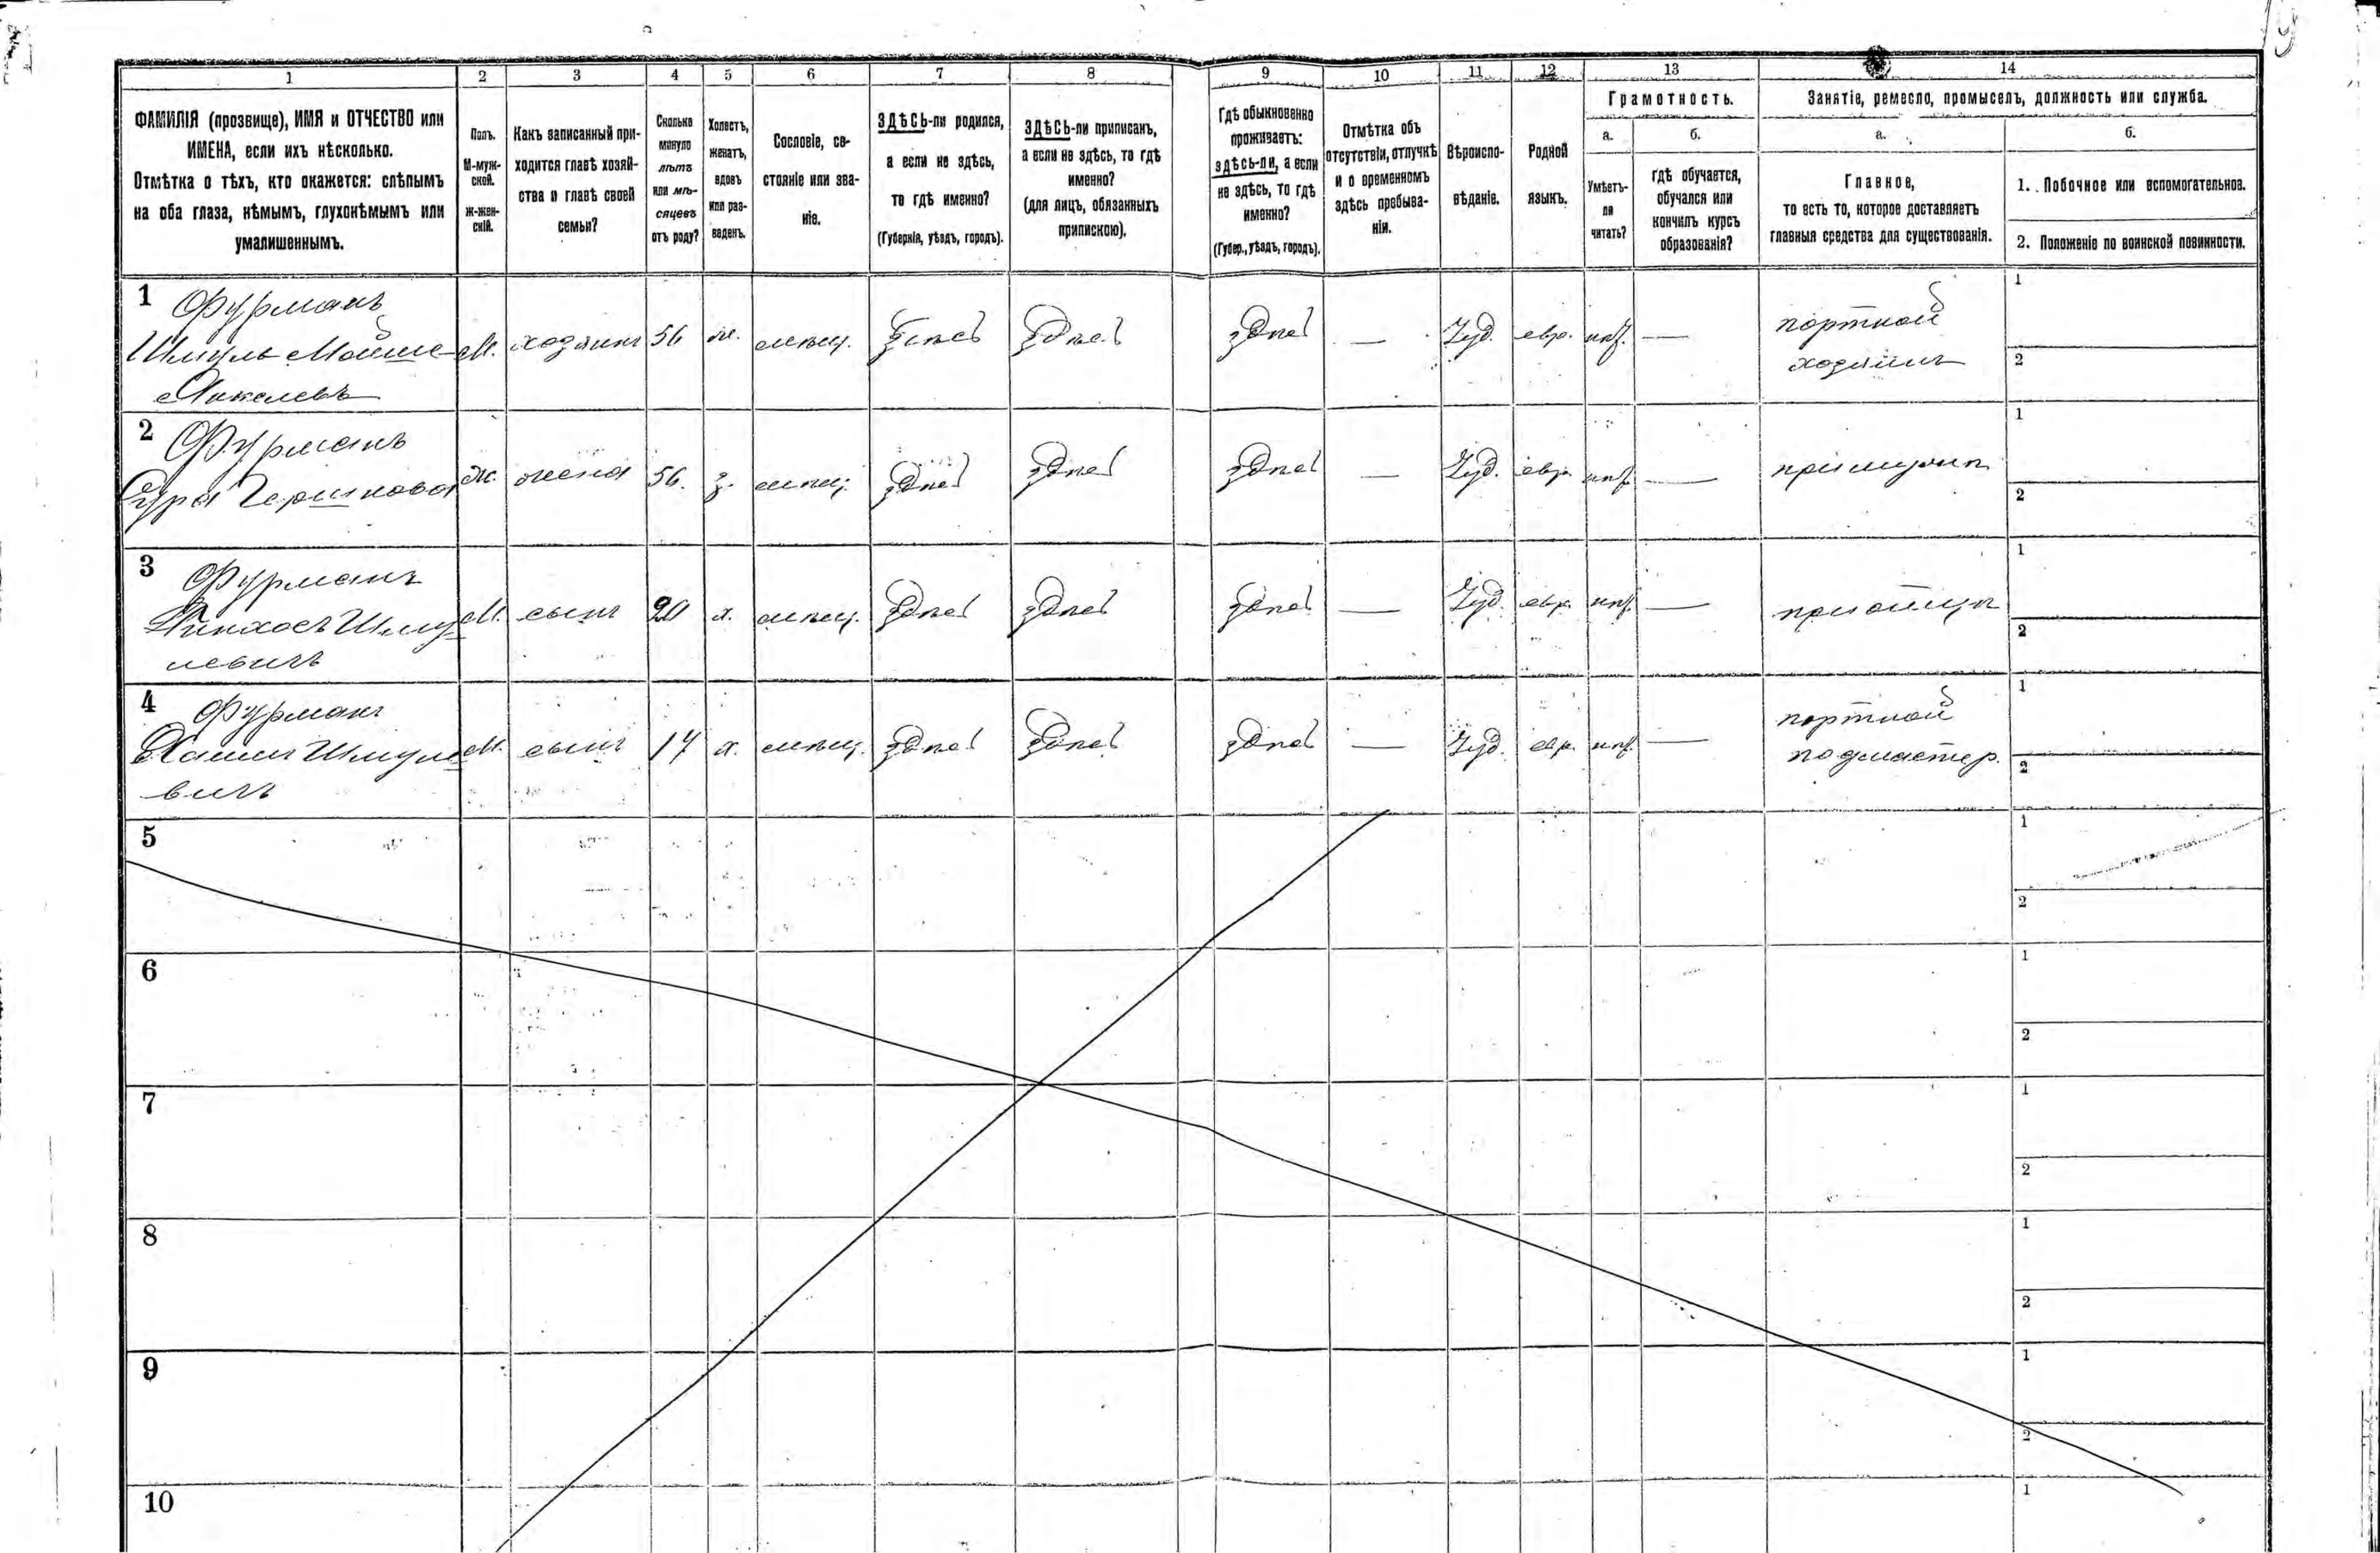 1 2 3 4 5 6 7 8 9 10 11 12 13 14
ФАМИЛІЯ (прозвище), ИМЯ и ОТЧЕСТВО или
ИМЕНА, если ихъ нѣсколько.
Отмѣтка о тѣхъ, кто окажется: слѣпымъ
на оба глаза, нѣмымъ, глухонѣмымъ или
умалишеннымъ.
Полъ.
М-муж-
ской.
Ж-жен-
скій.
Какъ записанный при-
ходится главѣ хозяй-
ства и главѣ своей
семьи?
Сколько
минуло
лѣтъ
или мѣ-
сяцевъ
отъ роду?
Холостъ,
женатъ,
вдовъ
или раз-
веденъ.
Сословіе, со-
стояніе или зва-
ніе.
ЗДѢСЬ-ли родился,
а если не здѣсь,
то гдѣ именно?
(Губернія, уѣздъ, городъ).
ЗДѢСЬ-ли приписанъ,
а если не здѣсь, то гдѣ
именно?
(для лицъ, обязанныхъ
припискою).
Гдѣ обыкновенно
проживаетъ:
здѣсь-ли, а если
не здѣсь, то гдѣ
именно?
(Губер., уѣздъ, городъ).
Отмѣтка объ
отсутствіи, отлучкѣ
и о временномъ
здѣсь пребыва-
ніи.
Вѣроиспо-
вѣданіе.
Родной
языкъ.
Грамотность.
а.
Умѣетъ-
ли
читать?
б.
гдѣ обучается,
обучался или
кончилъ курсъ
образованія?
Занятіе, ремесло, промыселъ, должность или служба.
а.
Главное,
то есть то, которое доставляетъ
главныя средства для существованія.
б.
1. Побочное или вспомогательное.
2. Положеніе по воинской повинности.
1 Фурманъ
Шмуль Мойше- М. хозяинъ 56 ж. мѣщ. здѣсь здѣсь здѣсь — Іуд. евр. нѣт. — портной
хозяинъ
1
2
2 Фурманъ
Сура Гершкова ж. жена 56. з. мѣщ. здѣсь здѣсь здѣсь — Іуд. евр. нѣт. — при мужѣ
1
2
3 Фурманъ
Пинхосъ Шму- М. сынъ 20 х. мѣщ. здѣсь здѣсь здѣсь — Іуд. евр. нѣт. — при отцѣ
левичъ
1
2
4 Фурманъ
Хаимъ Шмуле- М. сынъ 17 х. мѣщ. здѣсь здѣсь здѣсь — Іуд. евр. нѣт. — портной
вичъ подмастер.
1
2
5
1
2
6
1
2
7
1
2
8
1
2
9
1
2
10
1